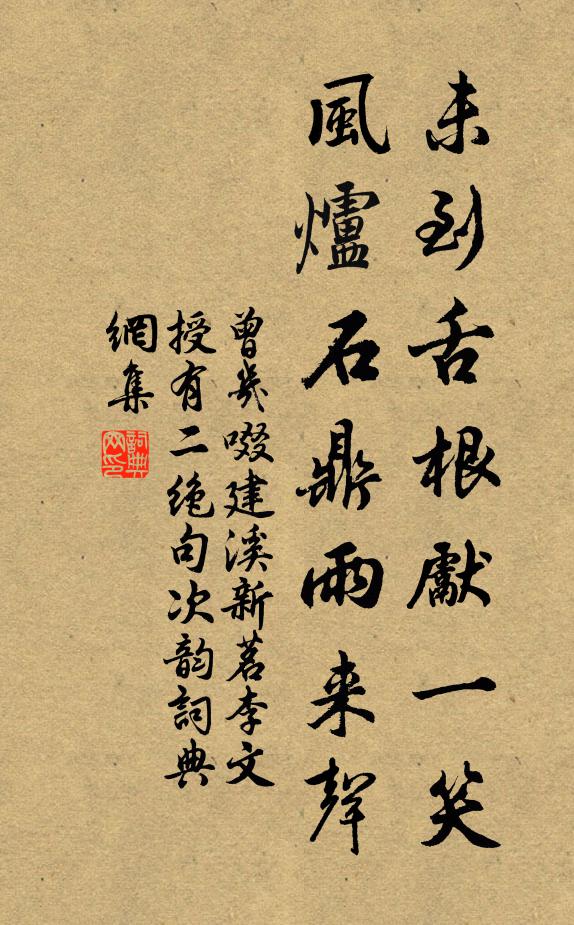 未到舌根獻一笑
風爐石鼎雨来聲
曾幾啜建溪新茗李文
授有二絶句次韵詞典
網集
詞典网印